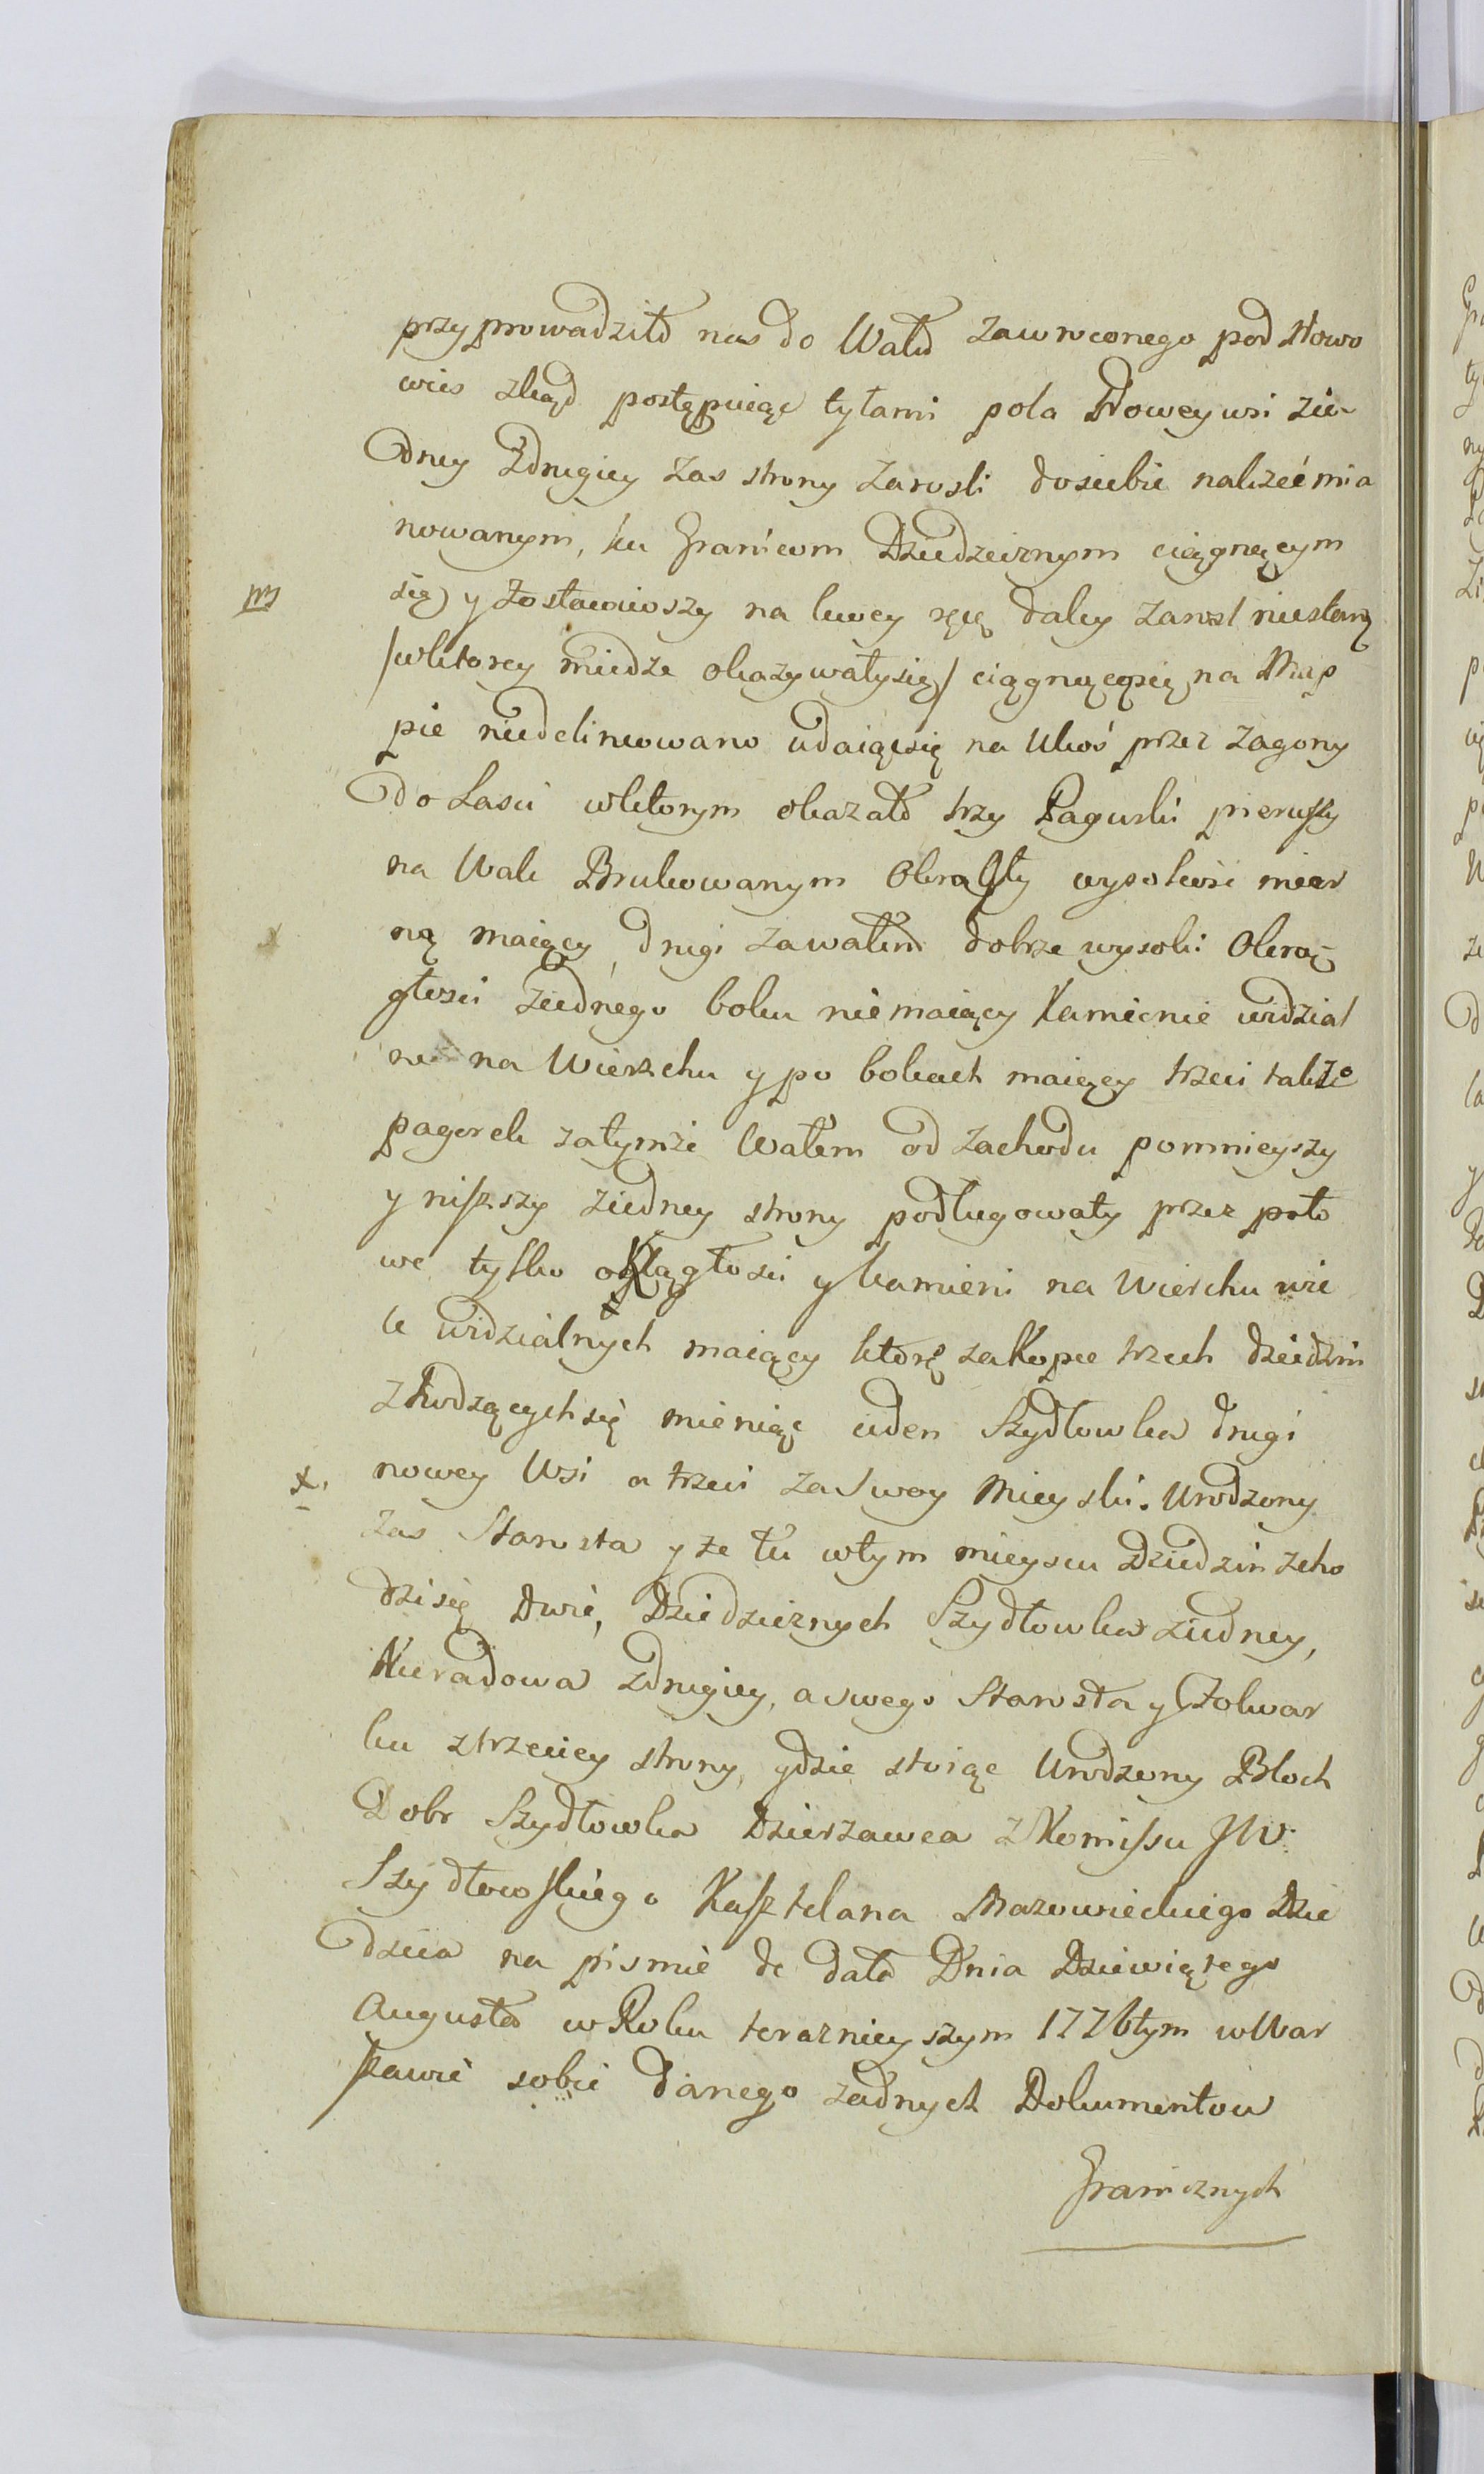 przyprowadziło nas do Wału zawroconego pod Nowo
wies zkąd postępuiąc tyłami pola Nowey wsi zie-
dney Zdrugiey zas strony zarosli dosiebie należeć mia
nowanym, ku Granicom Dziedzicznym ciągnącym
się y zostawiwszy na lewey ręcę daley zarosl niestarą
/wktorey miedze okazywały się/ ciągnącąsię na Map
pie niedelineowano udaiąc się na Ukoś przez zagony
do Lasu wktorym okazało trzy Pagurki pierwszy
na Wale Brukowanym Okrągły wysokość mier
ną maiący, drugi zawałem dobrze wysoki Okrą-
głosci ziednego boku niemaiący Kamienie widzial
ne na Wierzchu y po bokach maiący trzeci także
pagorek zatymże Wałem od zachodu pomnieyszy
y niższy ziedney strony podługowaty przez poło
we tylko okrągłosci y kamieni na Wierchu wie
le widzialnych maiący ktorę za Kopce trzech dziedzin
zchodzącychsię mieniąc ieden Szydłowka drugi
nowey Wsi a trzeci za swoy Mieyski. Urodzony
zas Starosta y że tu wtym mieyscu Dziedzin zcho
dzi się Dwie, Dziedzicznych Szydłowka ziedney,
Kuradowa zdrugiey, a swego Starosta y Folwar
ku ztrzeciey strony, gdzie stoiąc Urodzony Bloch
Dobr Szydłowka Dzierzawca z Komissu JW.
Szydłowskiego Kasztelana Mazowieckiego Dzie
dzica na pismie de dato Dnia Dziewiątego
Augusta w Roku teraznieyszym 1776tym wWar
szawie sobie danego zadnych Dokumentow
Granicznych